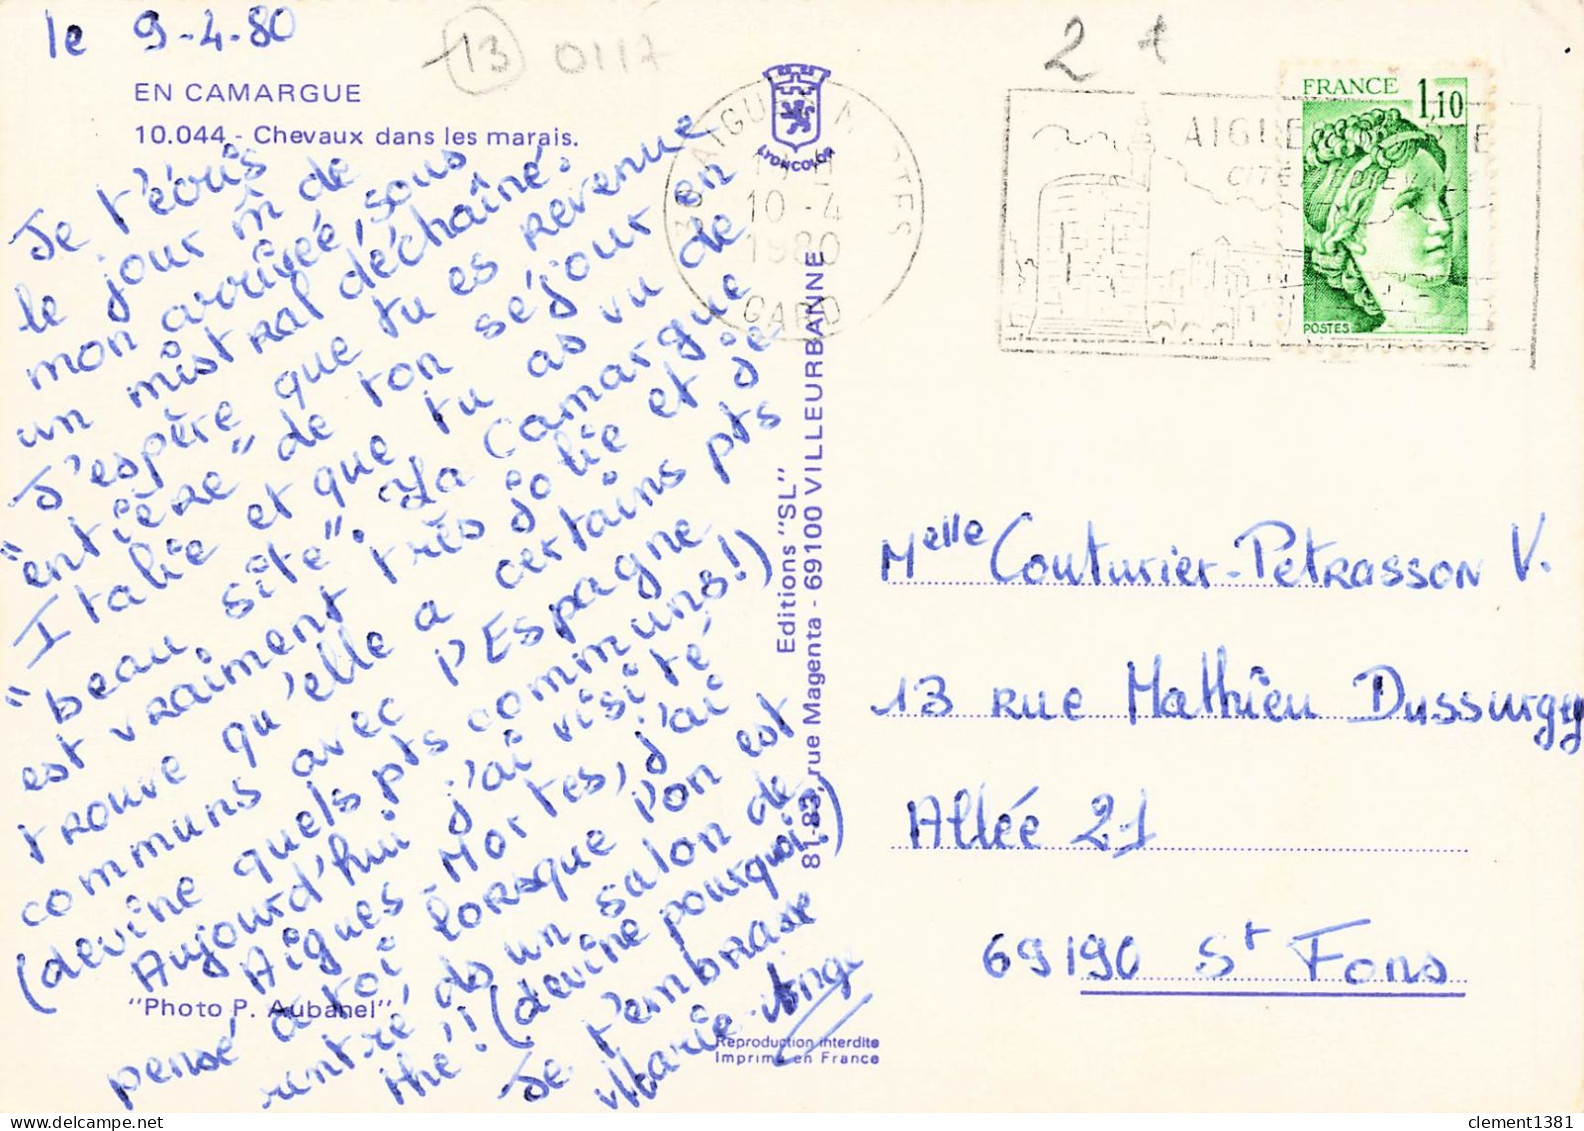 le 9-4-80
13
0117
2
EN CAMARGUE
10.044 - Chevaux dans les marais.
Je t'écris
le jour m̂ de
mon arrivée, sous
un mistral déchaîné.
J'espère que tu es revenue
"entière" de ton séjour en
Italie et que tu as vu de
"beau site". La Camargue
est vraiment très jolie et je
trouve qu'elle a certains pts
communs avec l'Espagne
(devine quels pts communs!)
Aujourd'hui j'ai visité
Aigues Mortes, j'ai
pensé à toi lorsque l'on est
rentré ds un salon de
thé! (devine pourquoi?)
Je t'embrasse
Marie-Ange
"Photo P. Aubanel"
LYONCOLOR
Editions "SL"
81-83, rue Magenta - 69100 VILLEURBANNE
Reproduction interdite
Imprimé en France
10-4
1980
GARD
FRANCE 1,10
POSTES
Melle Couturier-Petrasson V.
13 rue Mathieu Dussurgey
Allée 21
69190 St Fons
clement1381